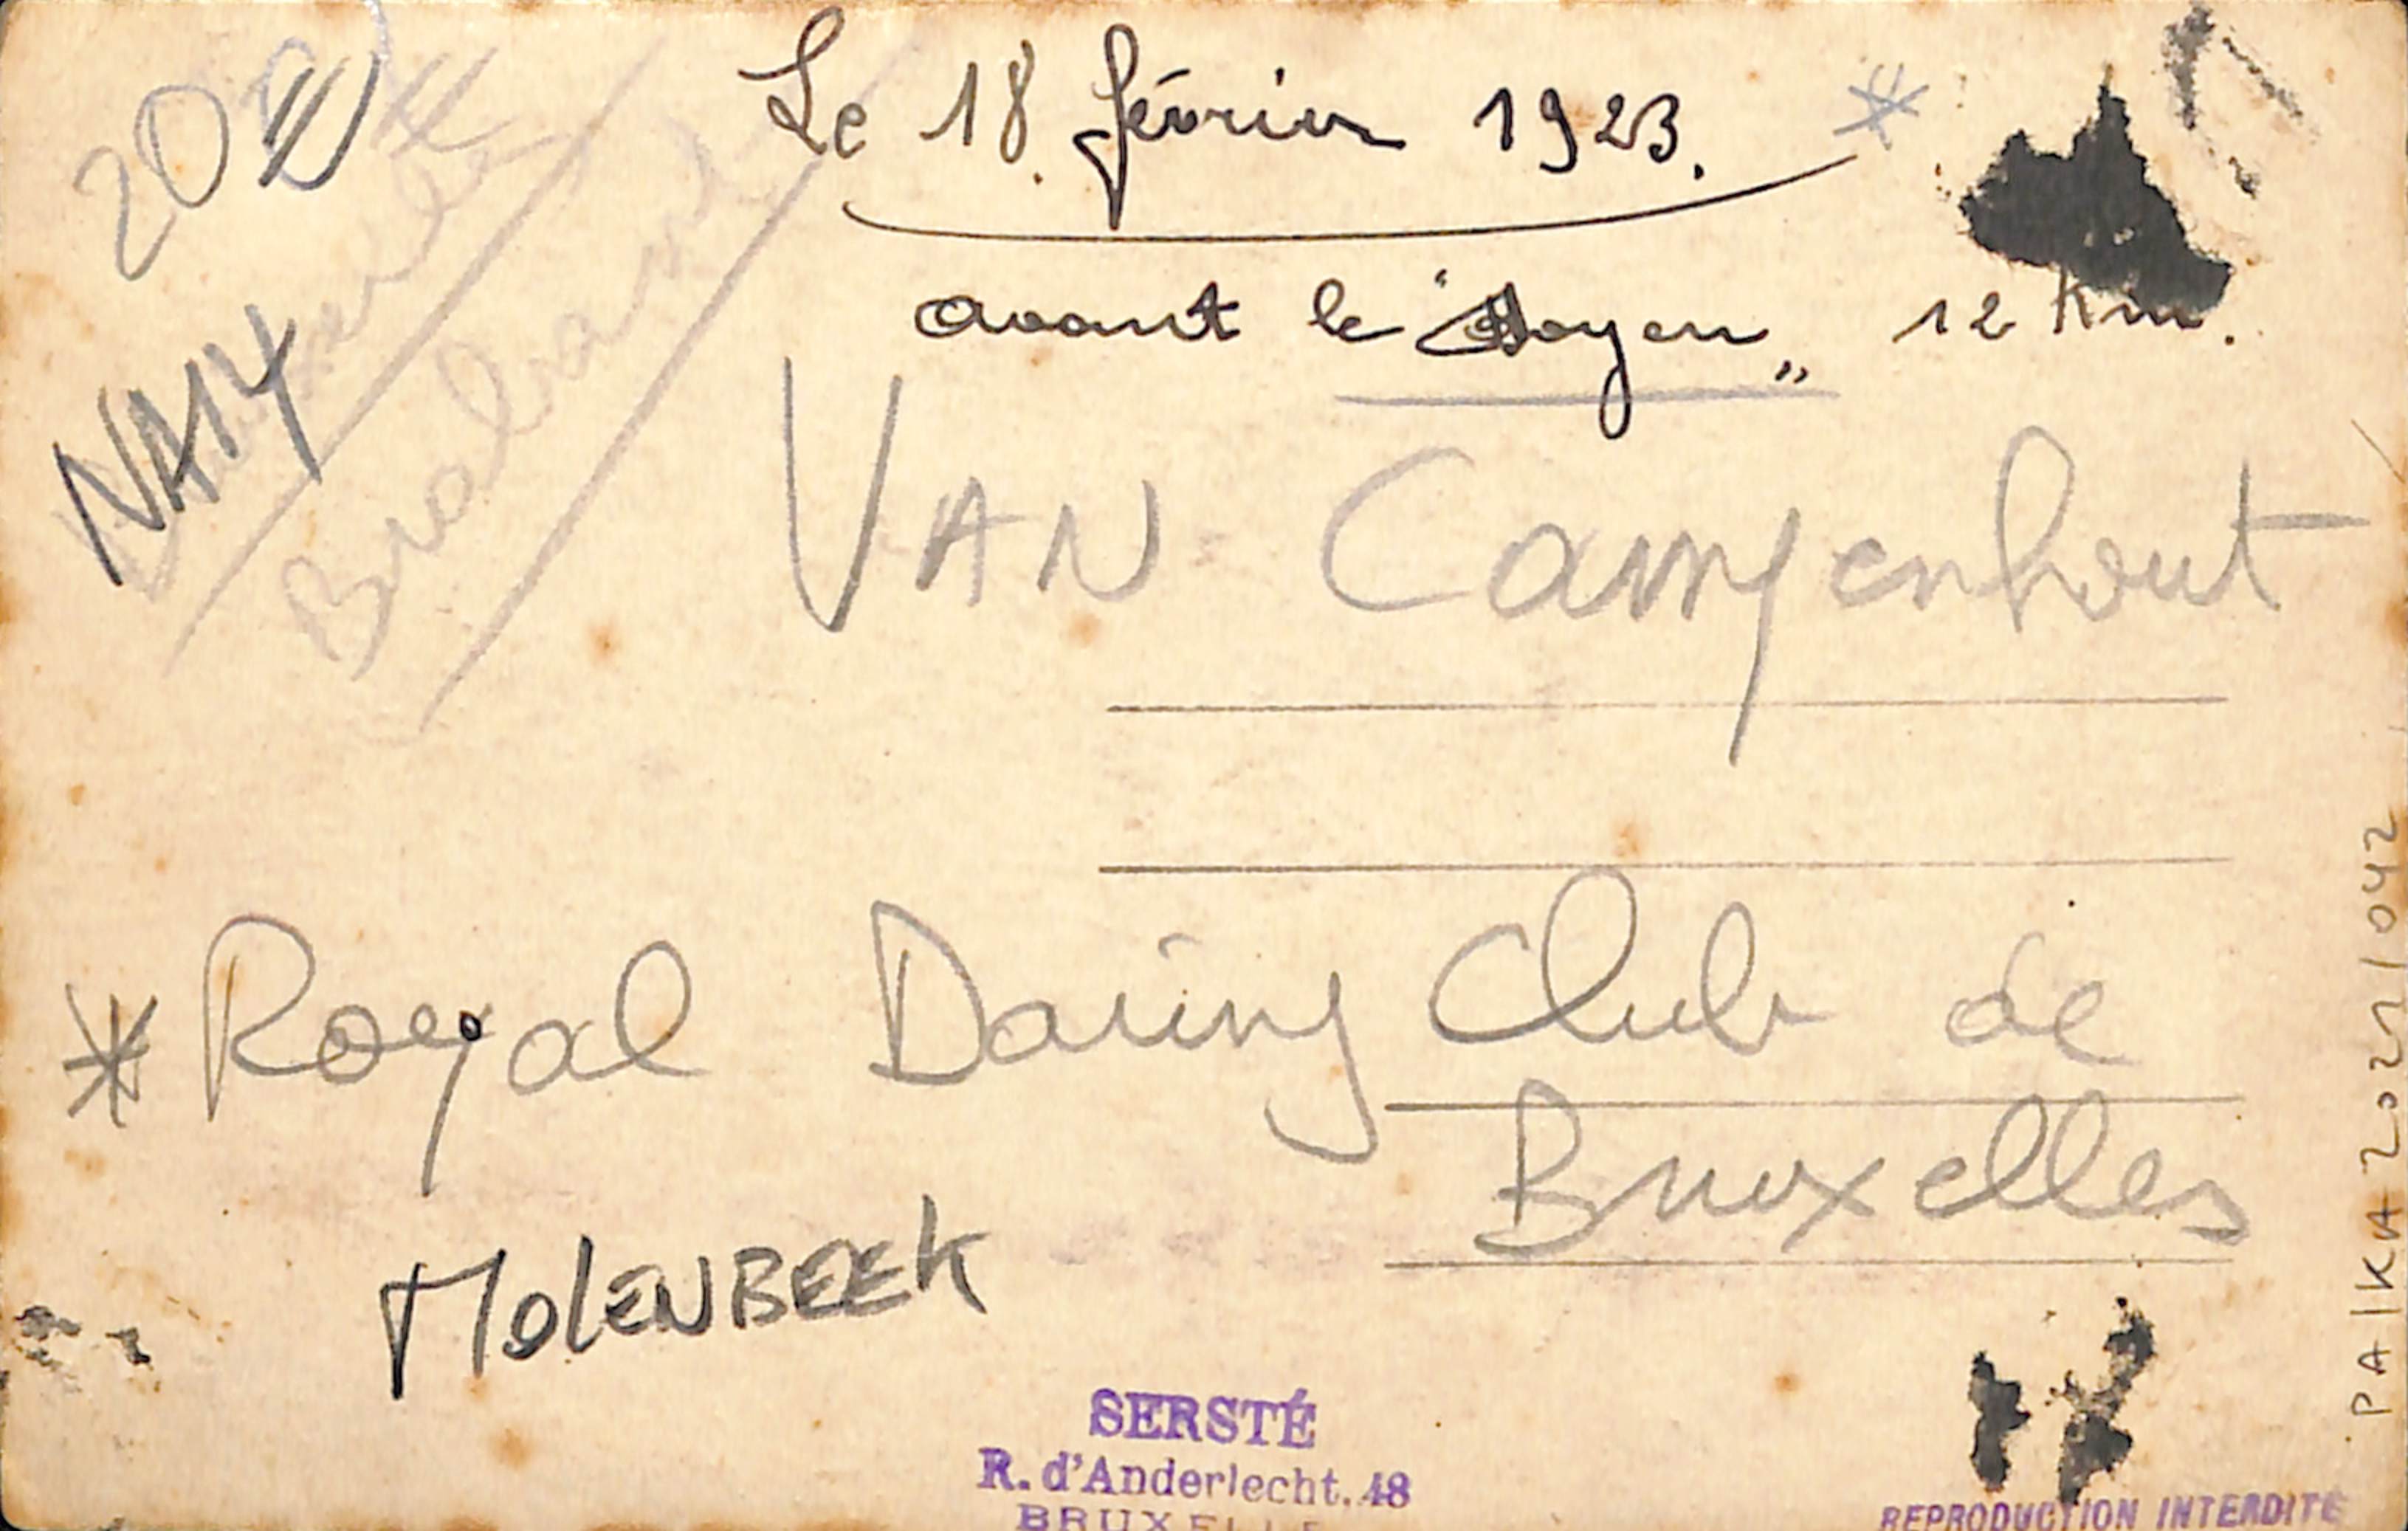 Le 18 février 1923.
avant le "Doyen" 12 Km.
VAN Campenhout
* Royal Daring Club de
Bruxelles
MOLENBEEK
NA14
Brabant
20
SERSTÉ
R. d'Anderlecht. 48
BRUXELLES
REPRODUCTION INTERDITE
PAIKA 2021/042